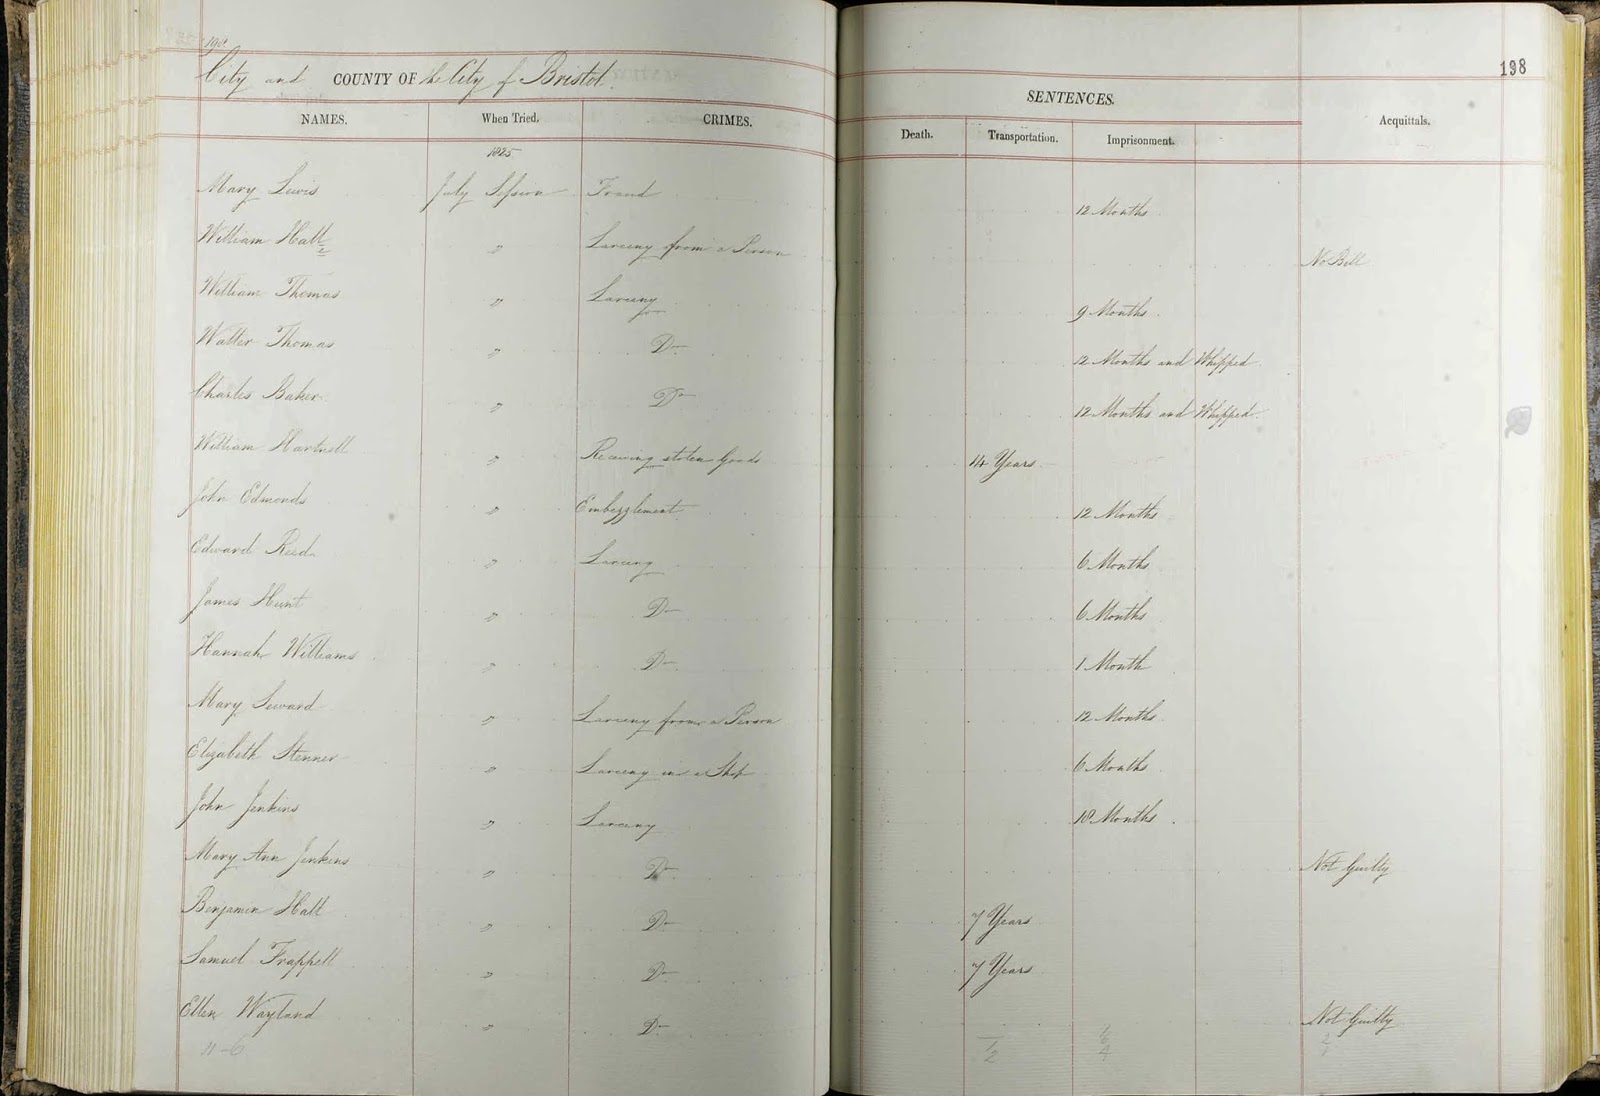 198
City and COUNTY OF the City of Bristol.
SENTENCES.
NAMES. When Tried. CRIMES. Death. Transportation. Imprisonment. Acquittals.
1825
Mary Lewis July Session Fraud 12 Months
William Hall " Larceny from a Person No Bill
William Thomas " Larceny 9 Months
Walter Thomas " Do 12 Months and Whipped
Charles Baker " Do 12 Months and Whipped
William Hartnell " Receiving stolen Goods 14 Years
John Edmonds " Embezzlement 12 Months
Edward Reed " Larceny 6 Months
James Hunt " Do 6 Months
Hannah Williams " Do 1 Month
Mary Seward " Larceny from a Person 12 Months
Elizabeth Stenner " Larceny in a Shop 6 Months
John Jenkins " Larceny 18 Months
Mary Ann Jenkins " Do Not Guilty
Benjamin Hall " Do 7 Years
Samuel Frappell " Do 7 Years
Ellen Wayland " Do Not Guilty
11-6 1 2 6 4 2 1